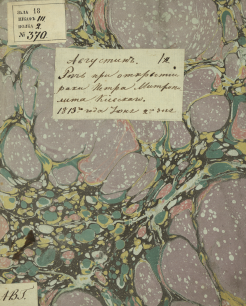 ЗАЛЪ 18
ШКАФЪ III
ПОЛКА 2
№ 370
Августинъ.
Рѣчь при открытіи
раки Петра Митропо
лита Кіевскаго.
1813го года Іюня дня
1 В.Г.